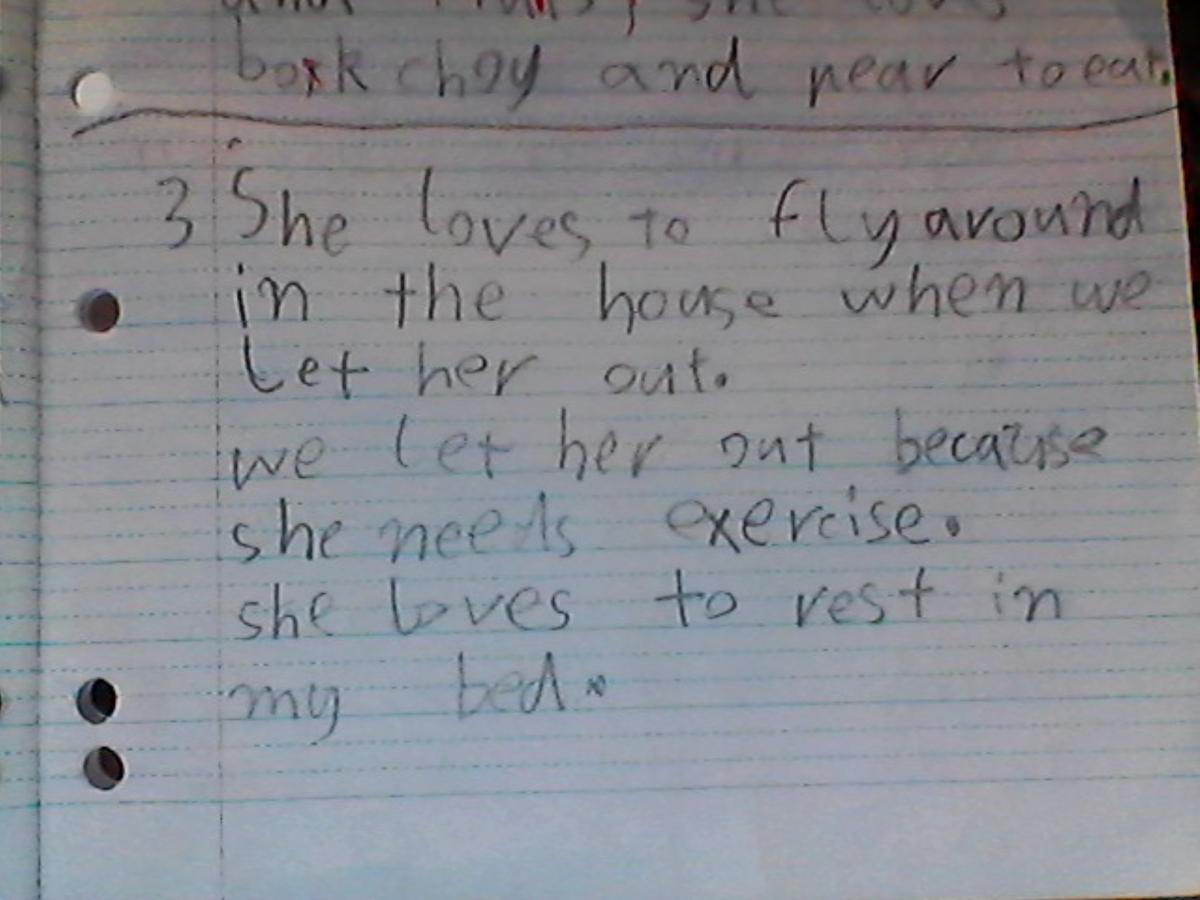 she loves
bok choy and pear to eat.
3 She loves to fly around
in the house when we
Let her out.
we let her out because
she needs exercise.
she loves to rest in
my bed.